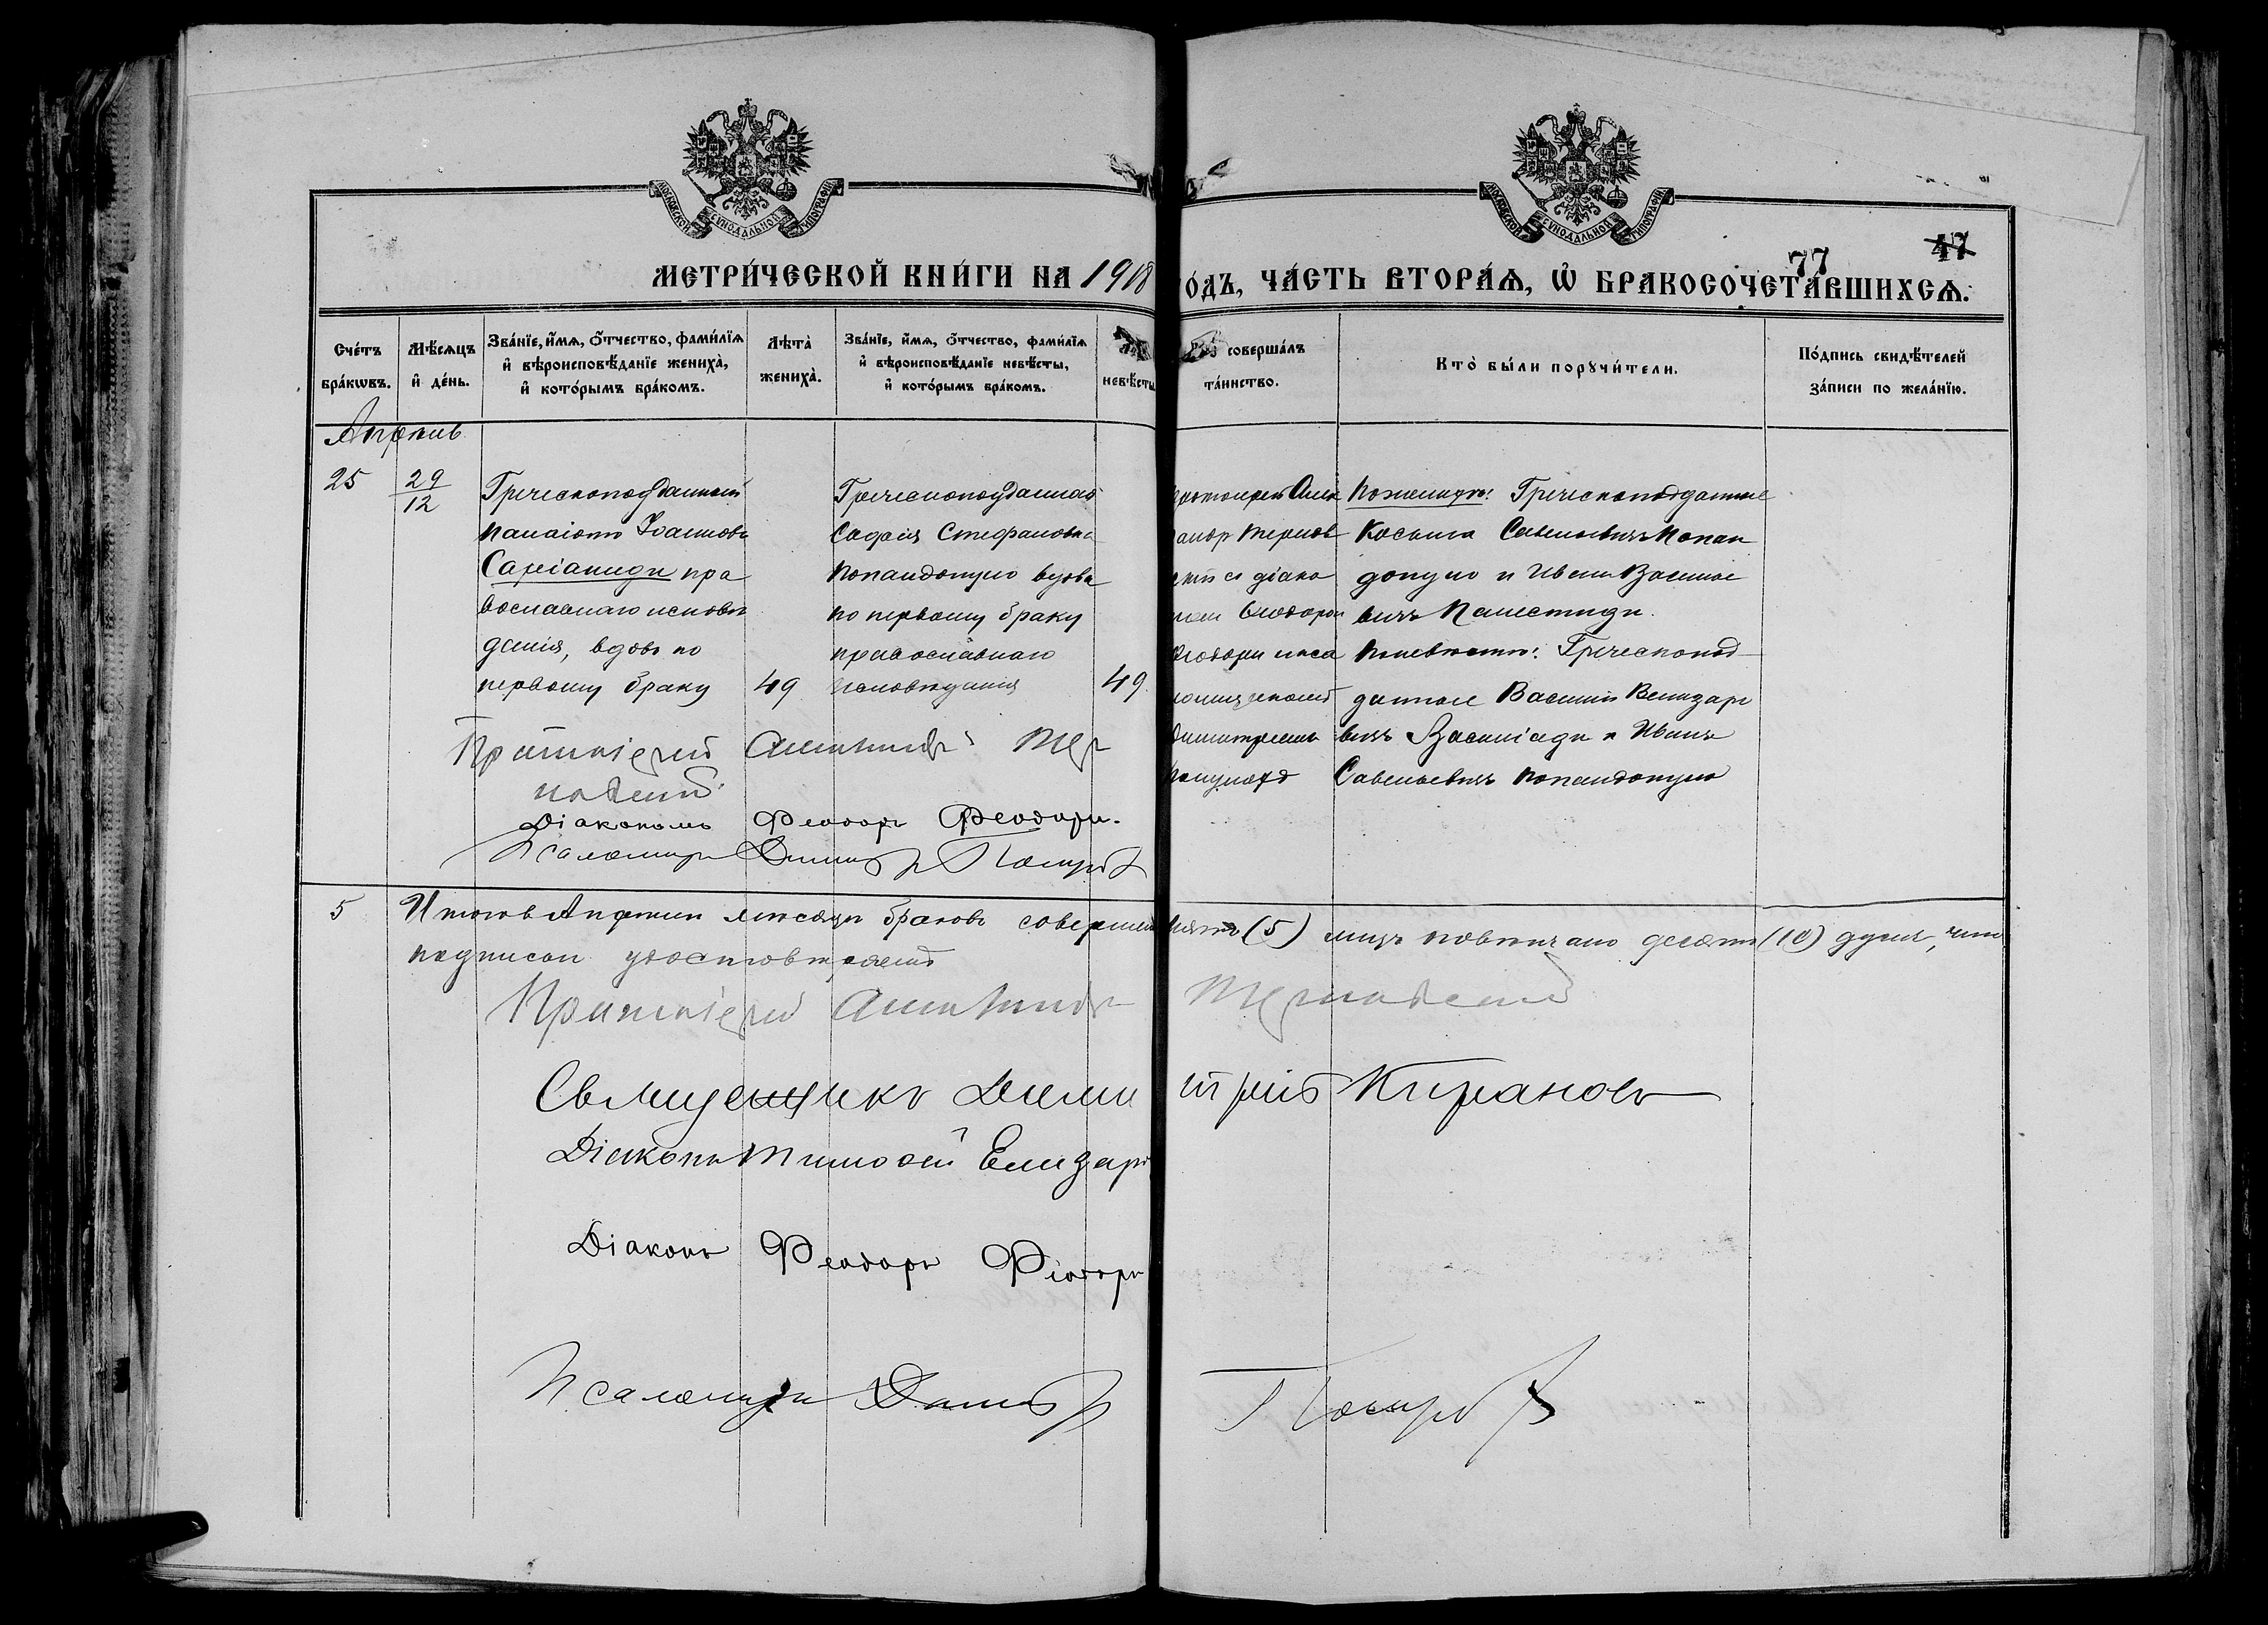 МОСКОВСКОЙ СѴНОДАЛЬНОЙ ТИПОГРАФІИ
МОСКОВСКОЙ СѴНОДАЛЬНОЙ ТИПОГРАФІИ
77 47
МЕТРИ́ЧЕСКОЙ КНИ́ГИ НА 1918
О́ДЪ, ЧА́СТЬ ВТОРА́Ѧ, Ѡ҆ БРАКОСОЧЕТА́ВШИХСѦ.
Сче́тъ бра́кѡвъ.
Мѣ́сѧцъ и҆ де́нь.
Зва́нїе, и҆́мѧ, ѻ҆́тчество, фами́лїѧ и҆ вѣроисповѣ́данїе жениха̀, и҆ кото́рымъ бра́комъ.
Лѣта̀ жениха̀.
Зва́нїе, и҆́мѧ, ѻ҆́тчество, фами́лїѧ и҆ вѣроисповѣ́данїе невѣ́сты, и҆ кото́рымъ бра́комъ.
невѣ́сты
соверша́лъ та́инство.
Кто̀ бы́ли порꙋчи́тели.
По́дпись свидѣ́телей за́писи по жела́нїю.
Апрѣль
25
29
12
Греческоподданный
Панаіотъ Іоанновъ
Саріаниди пра
вославнаго исповѣ
данія, вдовъ по
первому браку
49
Греческоподданная
Софія Стефановна
Попандопуло вдова
по первому браку
православнаго
исповѣданія
49
ротоіерей Алек
андр Терновс
кій съ діако
номъ Ѳеодоромъ
Ѳеодори и пса
ломщикомъ
Димитріемъ
По женихѣ: Греческоподданные
Косьма Савельевичъ Попан
допуло и Иванъ Василье
вичъ
По невѣстѣ: Греческопод
данные Василій Велизарі
вичъ Василіади и Иванъ
Савельевичъ Попандопуло
Протоіерей Александръ Тер
новскій
Діакономъ Феодоръ Феодори.
Псаломщ Димитр
5
Итого въ Апрѣлѣ мѣсяцѣ браковъ соверше пять (5) лицъ повѣнчано десять (10) душъ, что
подписом удостовѣряемъ
Протоіерей Александръ Терновскій
Священникъ Димитрій Кирановъ
Діаконъ Тимофей Елизаръ
Діаконъ Феодоръ Феодори
Псаломщикъ Димитр